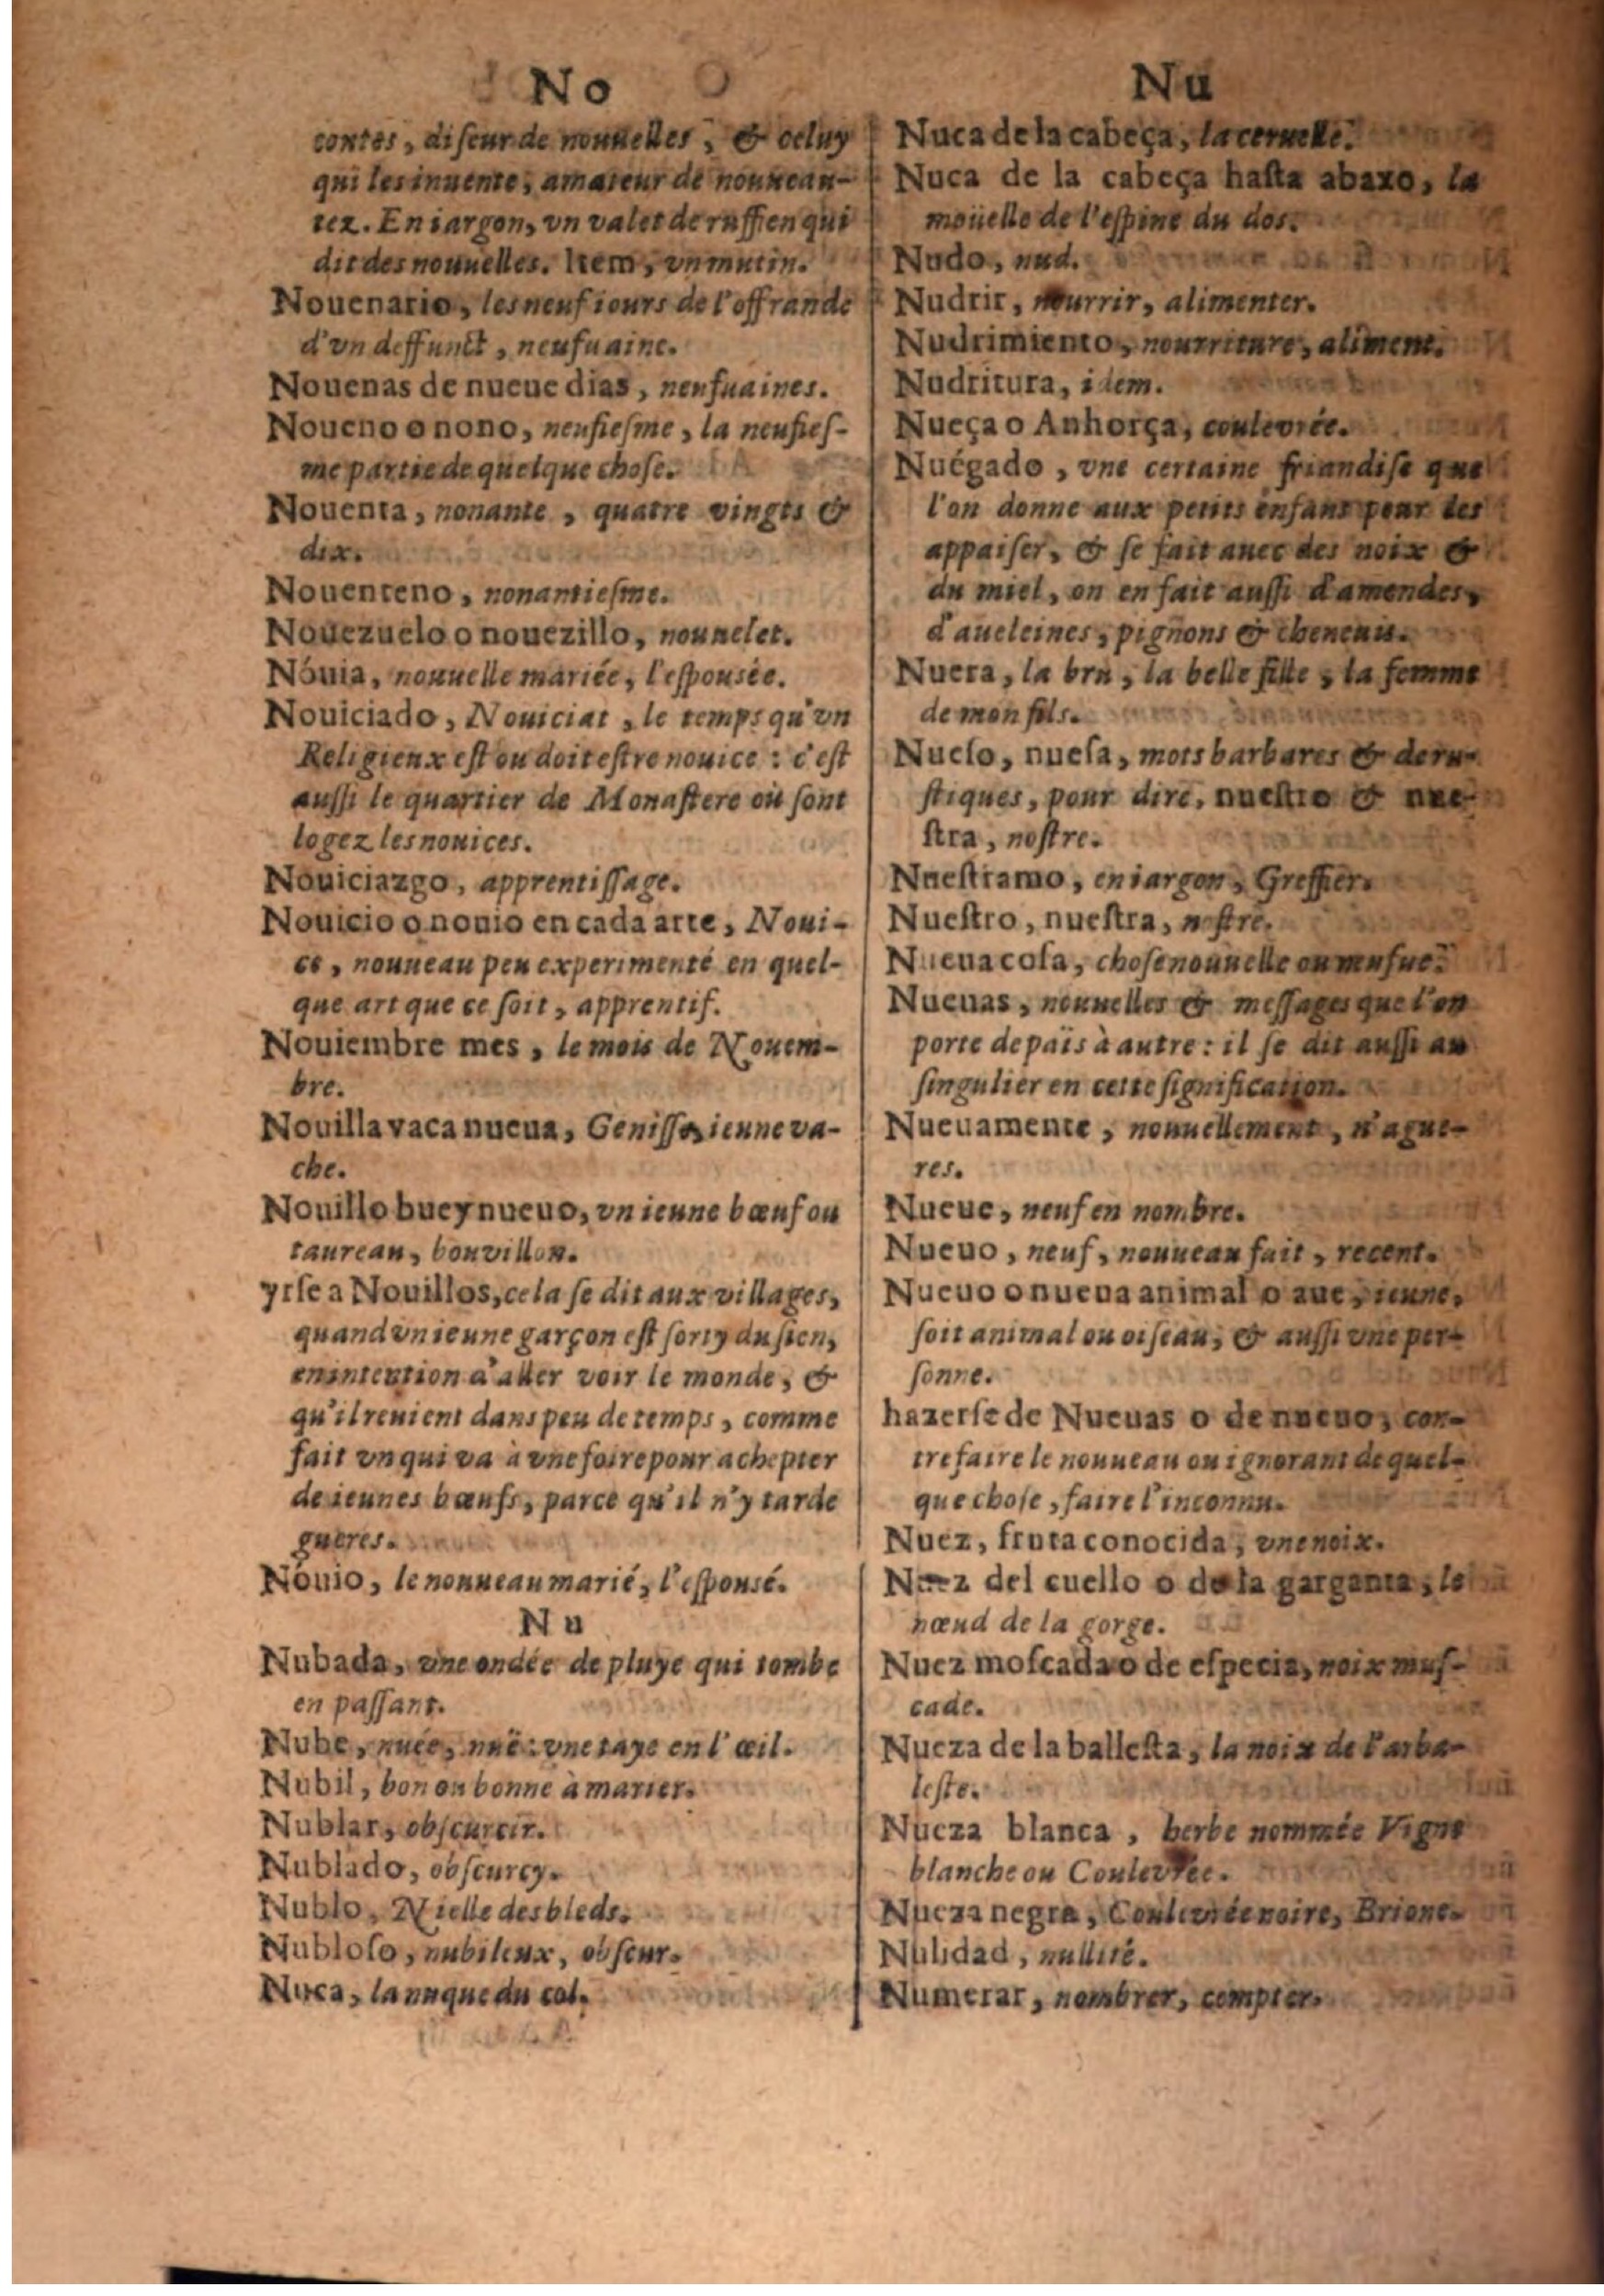 No
contes, diſeur de nouuelles, & celuy
qui les inuente, amateur de nouueau-
tez. En iargon, vn valet de ruffien qui
dit des nouuelles. Item, vn mutin.
Nouenario, les neuf iours de l'offrande
d'vn deffunct, neufuaine.
Nouenas de nueue dias, neufuaines.
Noueno o nono, neufieſme, la neufieſ-
me partie de quelque choſe.
Nouenta, nonante, quatre vingts &
dix.
Nouenteno, nonantieſme.
Nouezuelo o nouezillo, nouuelet.
Nóuia, nouuelle mariée, l'eſpousée.
Nouiciado, Nouiciat, le temps qu'vn
Religieux eſt ou doit eſtre nouice : c'eſt
auſſi le quartier de Monaſtere où ſont
logez les nouices.
Nouiciazgo, apprentiſſage.
Nouicio o nouio en cada arte, Noui-
ce, nouueau peu experimenté en quel-
que art que ce ſoit, apprentif.
Nouiembre mes, le mois de Nouem-
bre.
Nouilla vaca nueua, Geniſſe, ieune va-
che.
Nouillo buey nueuo, vn ieune bœuf ou
taureau, bouvillon.
yrſe a Nouillos, cela ſe dit aux villages,
quand vn ieune garçon eſt ſorty du ſien,
en intention d'aller voir le monde, &
qu'il reuient dans peu de temps, comme
fait vn qui va à vne foire pour achepter
de ieunes bœufs, parce qu'il n'y tarde
gueres.
Nóuio, le nouueau marié, l'eſpousé.
Nu
Nubada, vne ondée de pluye qui tombe
en paſſant.
Nube, nuée, nuë : vne taye en l'œil.
Nubil, bon ou bonne à marier.
Nublar, obſcurcir.
Nublado, obſcurcy.
Nublo, Nielle des bleds.
Nubloſo, nubileux, obſcur.
Nuca, la nuque du col.
Nu
Nuca de la cabeça, la ceruelle.
Nuca de la cabeça haſta abaxo, la
moüelle de l'eſpine du dos.
Nudo, nud.
Nudrir, nourrir, alimenter.
Nudrimiento, nourriture, aliment.
Nudritura, idem.
Nueça o Anhorça, coulevrée.
Nuégado, vne certaine friandiſe que
l'on donne aux petits enfans pour les
appaiſer, & ſe fait auec des noix &
du miel, on en fait auſſi d'amendes,
d'aueleines, pignons & cheneuis.
Nuera, la bru, la belle fille, la femme
de mon fils.
Nueſo, nueſa, mots barbares & deru-
ſtiques, pour dire, nueſtro & nue-
ſtra, noſtre.
Nueſtramo, en iargon, Greffier.
Nueſtro, nueſtra, noſtre.
Nueua coſa, choſe nouuelle ou neufue.
Nueuas, nouuelles & meſſages que l'on
porte de païs à autre : il ſe dit auſſi au
ſingulier en cette ſignification.
Nueuamente, nouuellement, n'ague-
res.
Nueue, neuf en nombre.
Nueuo, neuf, nouueau fait, recent.
Nueuo o nueua animal o aue, ieune,
ſoit animal ou oiſeau, & auſſi vne per-
ſonne.
hazerſe de Nueuas o de nueuo, con-
trefaire le nouueau ou ignorant de quel-
que choſe, faire l'inconnu.
Nuez, fruta conocida, vne noix.
Nuez del cuello o de la garganta, le
nœud de la gorge.
Nuez moſcada o de eſpecia, noix muſ-
cade.
Nueza de la balleſta, la noix de l'arba-
leſte.
Nueza blanca, herbe nommée Vigne
blanche ou Coulevrée.
Nueza negra, Coulevrée noire, Brione.
Nulidad, nullité.
Numerar, nombrer, compter.